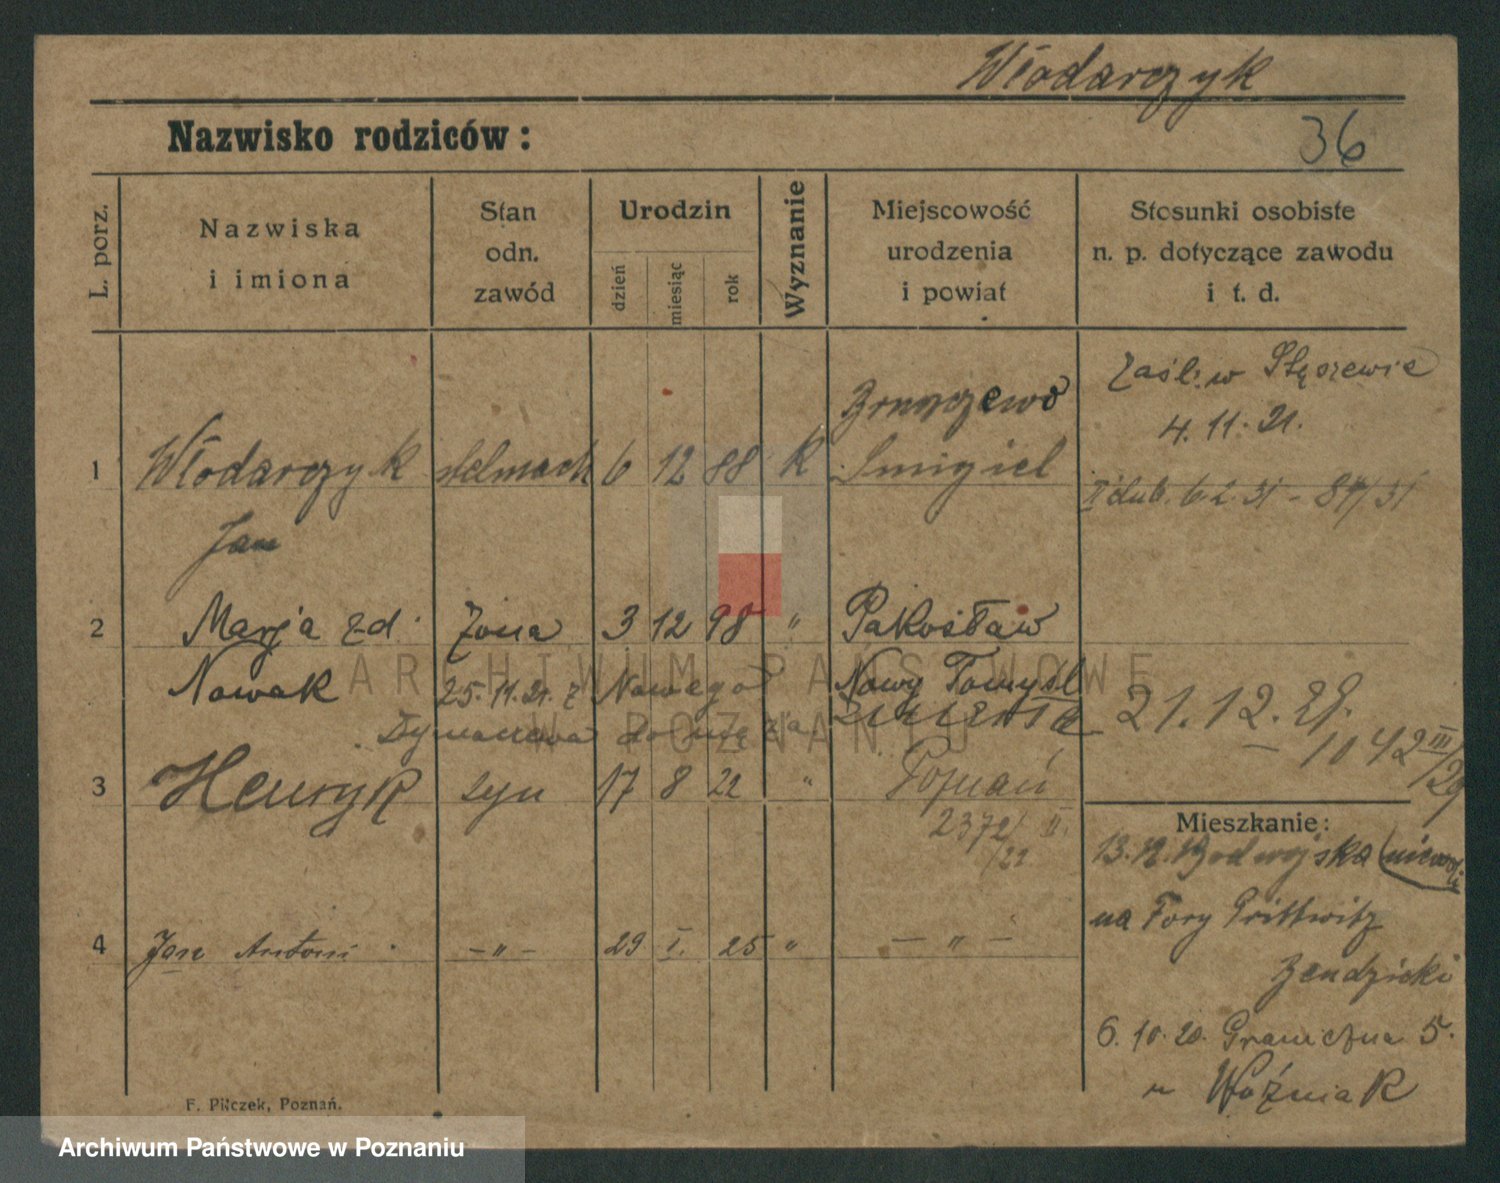 Włodarczyk
Nazwisko rodziców:
36
L. porz.
Nazwiska
i imiona
Stan
odn.
zawód
Urodzin
dzień
miesiąc
rok
Wyznanie
Miejscowość
urodzenia
i powiat
Stosunki osobiste
n. p. dotyczące zawodu
i t. d.
Zaśl. w Stęszewie
4. 11. 21.
1 Włodarczyk stelmach 6 12 88 K Śmigiel
Jan
2 Marja zd. żona 3 12 98 " Pakosław
Nowak 25. 11. 21. z Nowego Nowy Tomyśl
21. 12. 29.
1042 III/29
3 Henryk syn 17 8 22 " Poznań
2372/II.
/22
Mieszkanie:
13. 12. 19
na Fory Prittwitz
4 Jan Antoni - " - 29 I. 25 " - " -
6. 10. 20. Graniczna 5.
Woźniak
F. Pilczek, Poznań.
ARCHIWUM PAŃSTWOWE
W POZNANIU
Archiwum Państwowe w Poznaniu